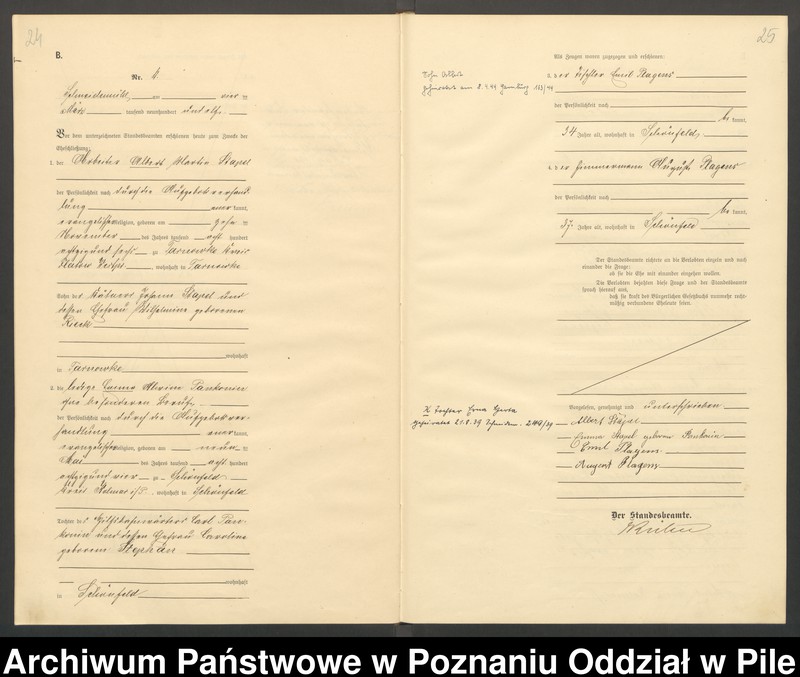 24
B.
Nr. 6.
Schneidemühl, am vier ten
März tausend neunhundert und elf.
Vor dem unterzeichneten Standesbeamten erschienen heute zum Zwecke der
Eheschließung:
1. der Arbeiter Albert Martin Stapel
der Persönlichkeit nach durch die Aufgebotsverhand-
lung anerkannt,
evangelischer Religion, geboren am
November des Jahres tausend acht hundert
achtzig und sechs zu Tarnowke Kreis
, wohnhaft in Tarnowke
Sohn des Johann Stapel und
dessen Ehefrau Wilhelmine geborenen
wohnhaft
in Tarnowke
2. die ledige Emma Alwine Pankonin
ohne besonderen Beruf
der Persönlichkeit nach durch die Aufgebotsver-
handlung anerkannt,
evangelischer Religion, geboren am neun ten
Mai des Jahres tausend acht hundert
achtzig und vier zu Schönfeld
Kreis Kolmar i/P., wohnhaft in Schönfeld
Tochter des Carl Pan-
konin und dessen Ehefrau Caroline
geborenen Stephan
wohnhaft
in Schönfeld
25
Als Zeugen waren zugezogen und erschienen:
3. der Tischler Emil Plagens
der Persönlichkeit nach
bekannt,
34 Jahre alt, wohnhaft in Schönfeld,
4. der Zimmermann August Plagens
der Persönlichkeit nach
bekannt,
37 Jahre alt, wohnhaft in Schönfeld
Der Standesbeamte richtete an die Verlobten einzeln und nach
einander die Frage:
ob sie die Ehe mit einander eingehen wollen.
Die Verlobten bejahten diese Frage und der Standesbeamte
sprach hierauf aus,
daß sie kraft des Bürgerlichen Gesetzbuchs nunmehr recht-
mäßig verbundene Eheleute seien.
Vorgelesen, genehmigt und unterschrieben
Albert Stapel
Emma Stapel geboren Pankonin
Emil Plagens
August Plagens
Der Standesbeamte.
Sohn Albert
geheiratet am 8.4.44 Hamburg 163/44
X Tochter Erna Gerda
geheiratet 21.8.39
Archiwum Państwowe w Poznaniu Oddział w Pile